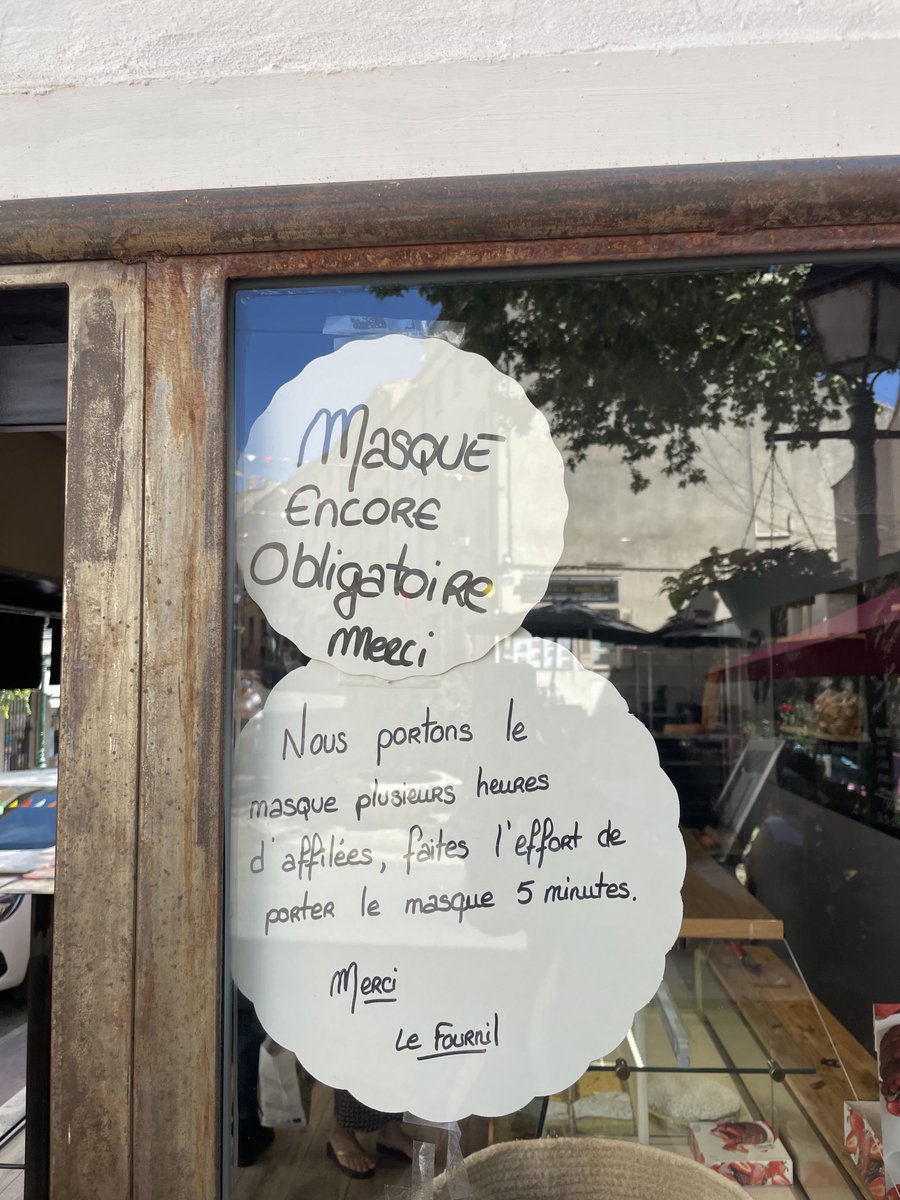 Masque
Encore
Obligatoire
Merci
Nous portons le
masque plusieurs heures
d'affilées, faites l'effort de
porter le masque 5 minutes.
Merci
Le Fournil